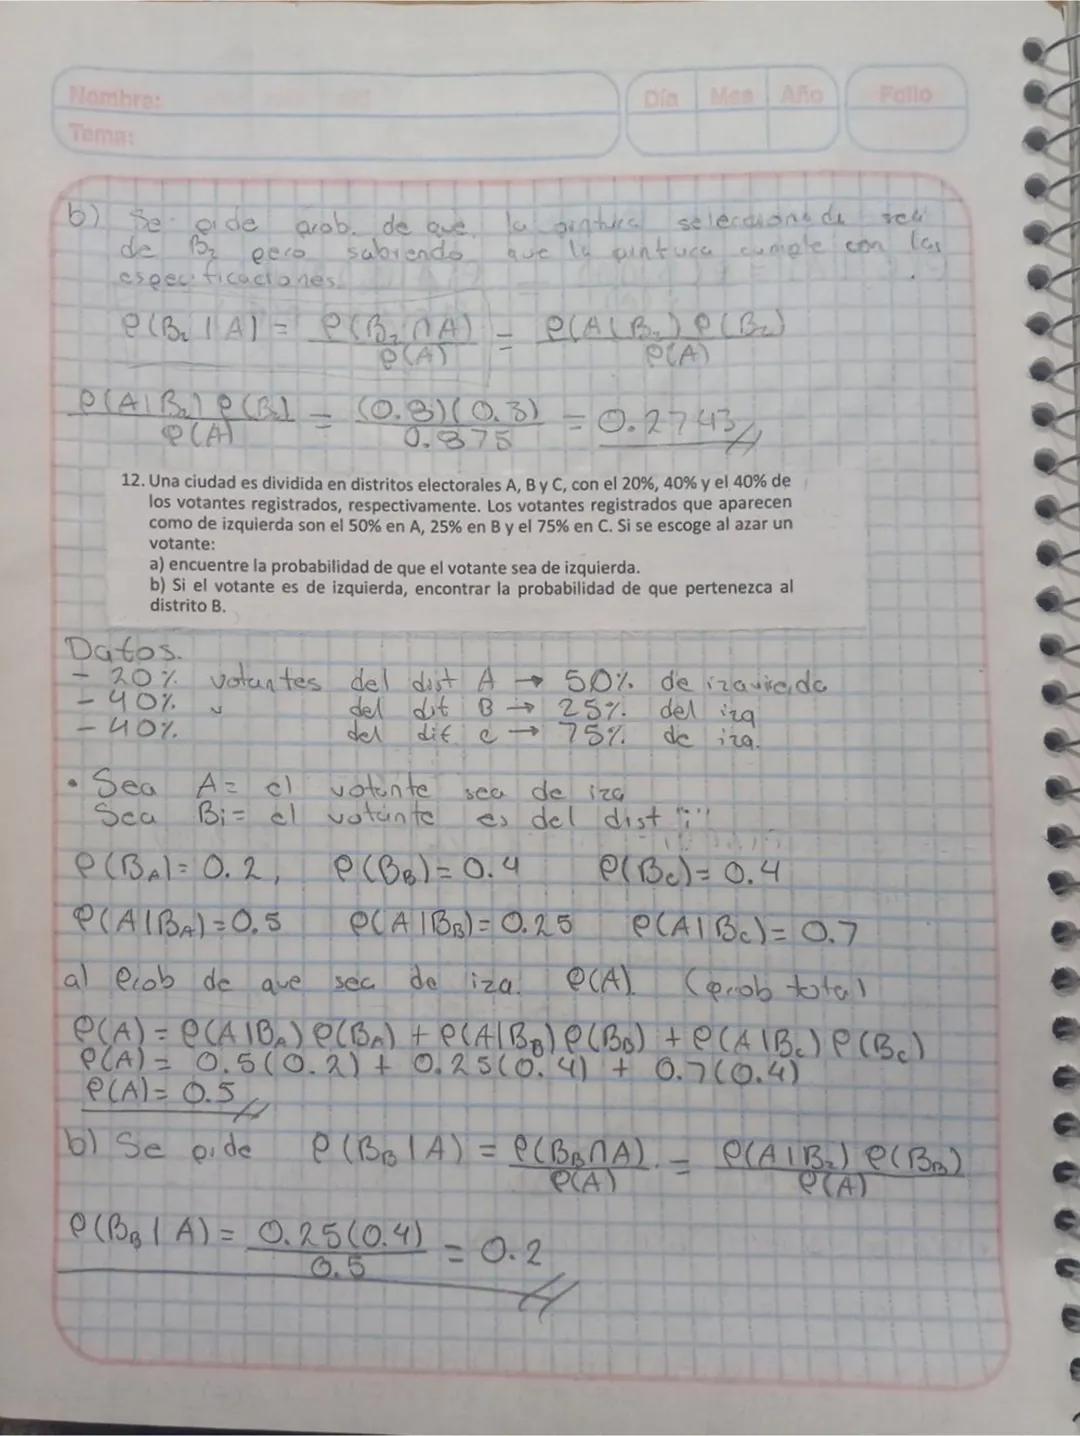 Nombre:
Tema:
Día Mes Año Folio
b) Se pide prob. de que la pintura seleccionada sea
de B₂ pero sabiendo que la pintura cumple con las
especificaciones.
P(B₂ | A) = P(B₂ ∩ A) / P(A) = P(A | B₂) P(B₂) / P(A)
P(A | B₂) P(B₂) / P(A) = (0.8)(0.3) / 0.875 = 0.2743
12. Una ciudad es dividida en distritos electorales A, B y C, con el 20%, 40% y el 40% de
los votantes registrados, respectivamente. Los votantes registrados que aparecen
como de izquierda son el 50% en A, 25% en B y el 75% en C. Si se escoge al azar un
votante:
a) encuentre la probabilidad de que el votante sea de izquierda.
b) Si el votante es de izquierda, encontrar la probabilidad de que pertenezca al
distrito B.
Datos.
- 20% votantes del dist A → 50% de izquierda
- 40% " del dit B → 25% del izq
- 40% del dit c → 75% de izq.
• Sea A = el votante sea de izq
Sea Bi = el votante es del dist "i"
P(B_A) = 0.2, P(B_B) = 0.4 P(B_C) = 0.4
P(A | B_A) = 0.5 P(A | B_B) = 0.25 P(A | B_C) = 0.7
a) Prob de que sea de izq. P(A). (prob total)
P(A) = P(A | B_A) P(B_A) + P(A | B_B) P(B_B) + P(A | B_C) P(B_C)
P(A) = 0.5(0.2) + 0.25(0.4) + 0.7(0.4)
P(A) = 0.5
b) Se pide P(B_B | A) = P(B_B ∩ A) / P(A) = P(A | B₂) P(B_B) / P(A)
P(B_B | A) = 0.25(0.4) / 0.5 = 0.2